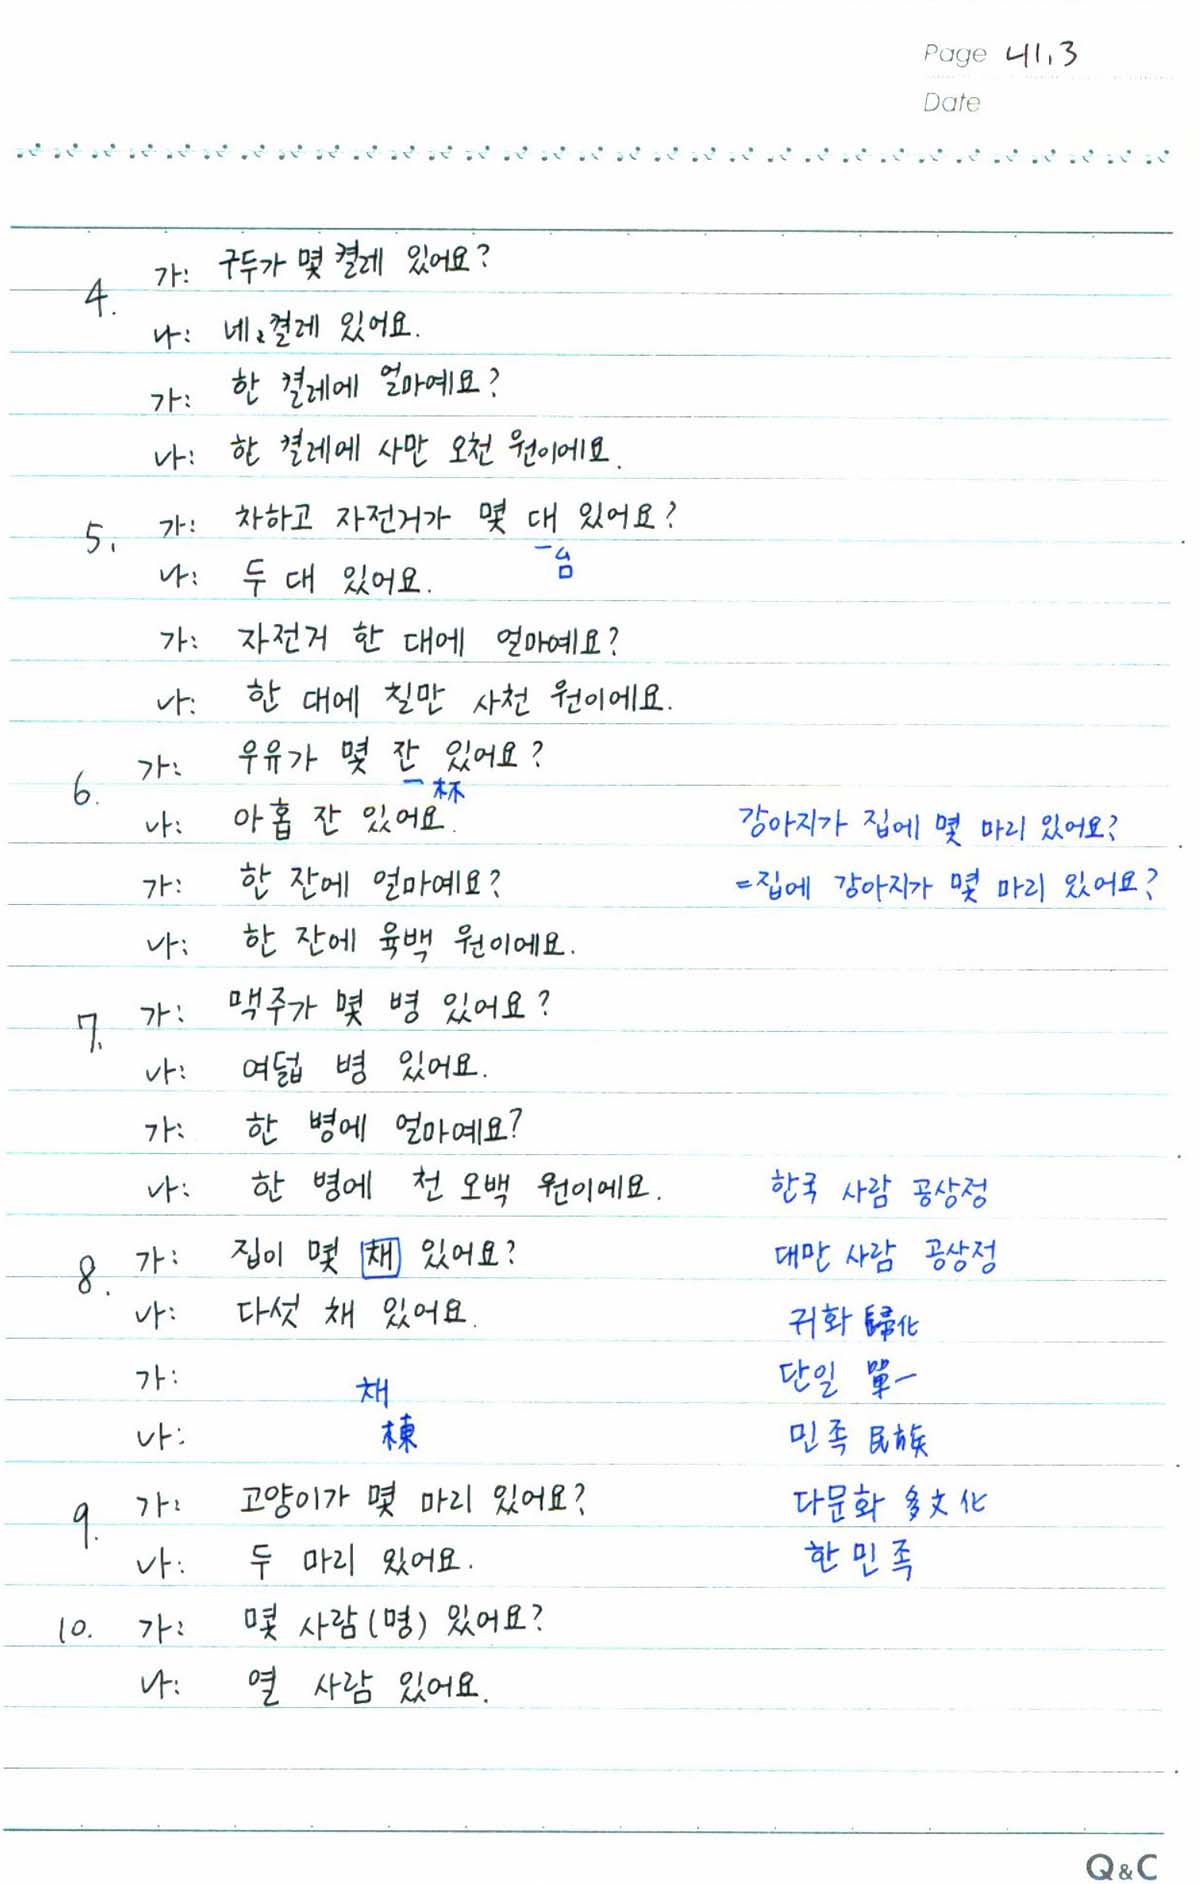 Page 41.3
Date
4. 가: 구두가 몇 켤레 있어요?
나: 네 켤레 있어요.
가: 한 켤레에 얼마예요?
나: 한 켤레에 사만 오천 원이에요.
5. 가: 차하고 자전거가 몇 대 있어요?
台
나: 두 대 있어요.
가: 자전거 한 대에 얼마예요?
나: 한 대에 칠만 사천 원이에요.
6. 가: 우유가 몇 잔 있어요?
杯
나: 아홉 잔 있어요. 강아지가 집에 몇 마리 있어요?
가: 한 잔에 얼마예요? =집에 강아지가 몇 마리 있어요?
나: 한 잔에 육백 원이에요.
7. 가: 맥주가 몇 병 있어요?
나: 여덟 병 있어요.
가: 한 병에 얼마예요?
나: 한 병에 천 오백 원이에요. 한국 사람 공상정
8. 가: 집이 몇 채 있어요? 대만 사람 공상정
나: 다섯 채 있어요. 귀화 歸化
가: 채 단일 單一
나: 棟 민족 民族
9. 가: 고양이가 몇 마리 있어요? 다문화 多文化
나: 두 마리 있어요. 한민족
10. 가: 몇 사람(명) 있어요?
나: 열 사람 있어요.
Q&C